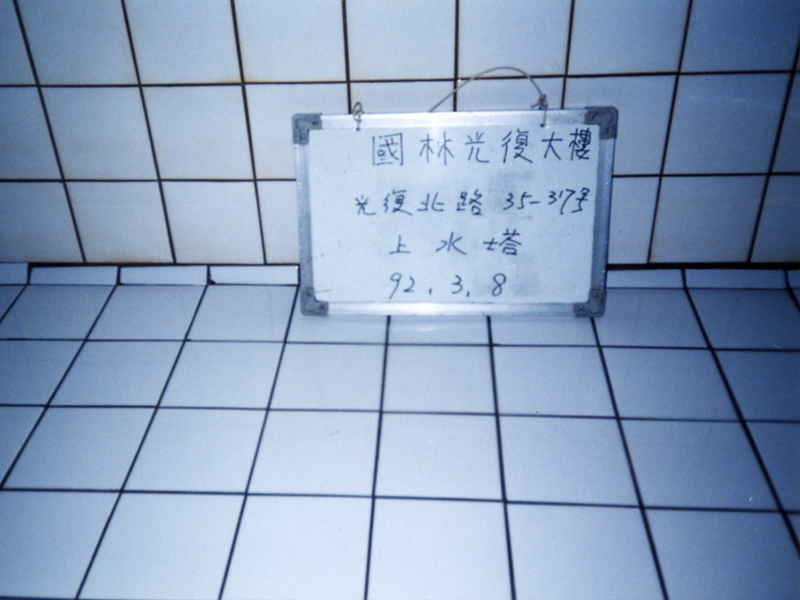 國林光復大樓
光復北路 35-37号
上水塔
92.3.8